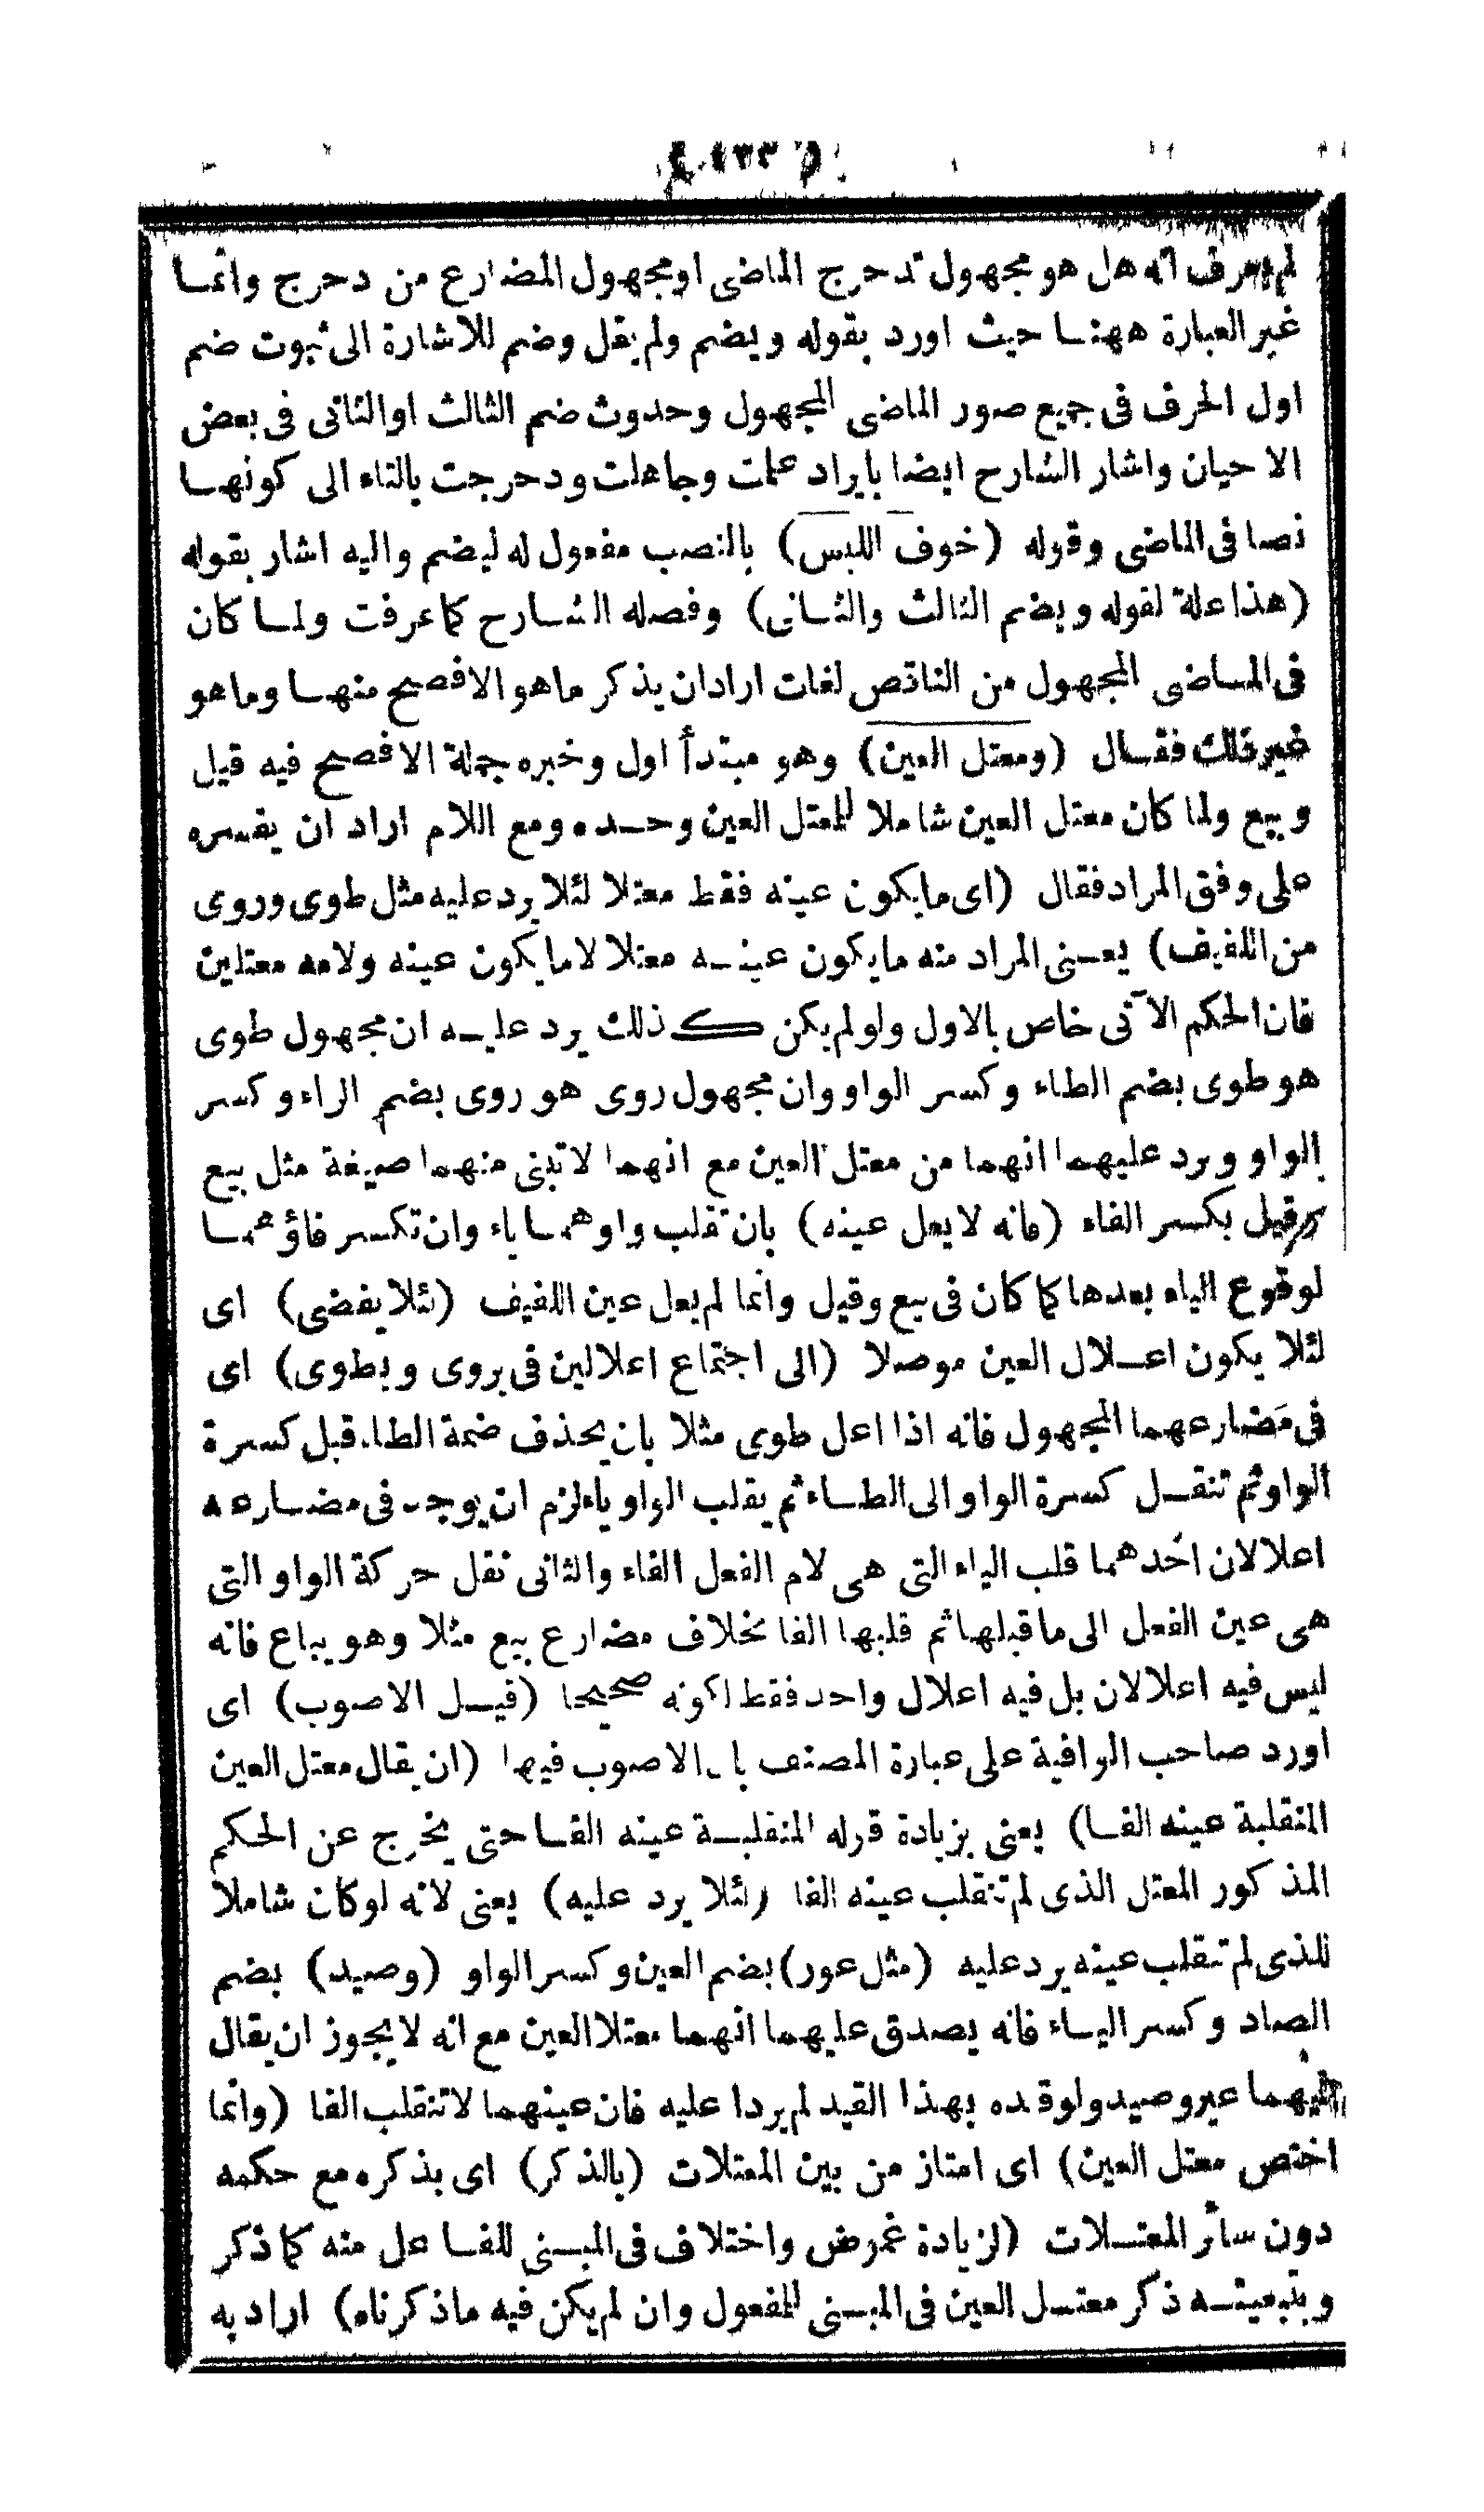 ﴿ ١٣٣ ﴾
لم يعرف انه هل هو مجهول تدحرج الماضى او مجهول المضارع من دحرج وانما
غير العبارة ههنا حيث اورد بقوله ويضم ولم يقل وضم للاشارة الى ثبوت ضم
اول الحرف فى جميع صور الماضى المجهول وحدوث ضم الثالث او الثانى فى بعض
الاحيان واشار الشارح ايضا بايراد علمت وجاهلت ودحرجت بالتاء الى كونها
نصا فى الماضى وقوله (خوف اللبس) بالنصب مفعول له ليضم واليه اشار بقوله
(هذا علة لقوله ويضم الثالث والثانى) وفصله الشارح كما عرفت ولما كان
فى الماضى المجهول من الناقص لغات اراد ان يذكر ما هو الافصح منها وما هو
غير ذلك فقال (ومعتل العين) وهو مبتدأ اول وخبره جملة الافصح فيه قيل
وبيع ولما كان معتل العين شاملا للمعتل العين وحده ومع اللام اراد ان يفسره
على وفق المراد فقال (اى ما يكون عينه فقط معتلا لئلا يرد عليه مثل طوى وروى
من اللفيف) يعنى المراد منه ما يكون عينه معتلا لا ما يكون عينه ولامه معتلين
فان الحكم الآتى خاص بالاول ولو لم يكن كذلك يرد عليه ان مجهول طوى
هو طوى بضم الطاء وكسر الواو وان مجهول روى هو روى بضم الراء وكسر
الواو ويرد عليهما انهما من معتل العين مع انهما لا تبنى منهما صيغة مثل بيع
وقيل بكسر الفاء (فانه لا يعل عينه) بان تقلب واوهما ياء وان تكسر فاؤهما
لوقوع الياء بعدها كما كان فى بيع وقيل وانما لم يعل عين اللفيف (لئلا يفضى) اى
لئلا يكون اعلال العين موصلا (الى اجتماع اعلالين فى يروى ويطوى) اى
فى مضارعهما المجهول فانه اذا اعل طوى مثلا بان يحذف ضمة الطاء قبل كسرة
الواو ثم تنقل كسرة الواو الى الطاء ثم يقلب الواو ياء لزم ان يوجد فى مضارعه
اعلالان احدهما قلب الياء التى هى لام الفعل الفاء والثانى نقل حركة الواو التى
هى عين الفعل الى ما قبلها ثم قلبها الفا بخلاف مضارع بيع مثلا وهو يباع فانه
ليس فيه اعلالان بل فيه اعلال واحد فقط لكونه صحيحا (قيل الاصوب) اى
اورد صاحب الوافية على عبارة المصنف بان الاصوب فيها (ان يقال معتل العين
المنقلبة عينه الفا) يعنى بزيادة قوله المنقلبة عينه الفا حتى يخرج عن الحكم
المذكور المعتل الذى لم تنقلب عينه الفا (لئلا يرد عليه) يعنى لانه لو كان شاملا
للذى لم تنقلب عينه يرد عليه (مثل عور) بضم العين وكسر الواو (وصيد) بضم
الصاد وكسر الياء فانه يصدق عليهما انهما معتلا العين مع انه لا يجوز ان يقال
فيهما عير وصيد ولو قيده بهذا القيد لم يردا عليه فان عينهما لا تنقلب الفا (وانما
اختص معتل العين) اى امتاز من بين المعتلات (بالذكر) اى بذكره مع حكمه
دون سائر المعتلات (لزيادة غموض واختلاف فى المبنى للفاعل منه كما ذكر
وبتبعيته ذكر معتل العين فى المبنى للمفعول وان لم يكن فيه ما ذكرناه) اراد به